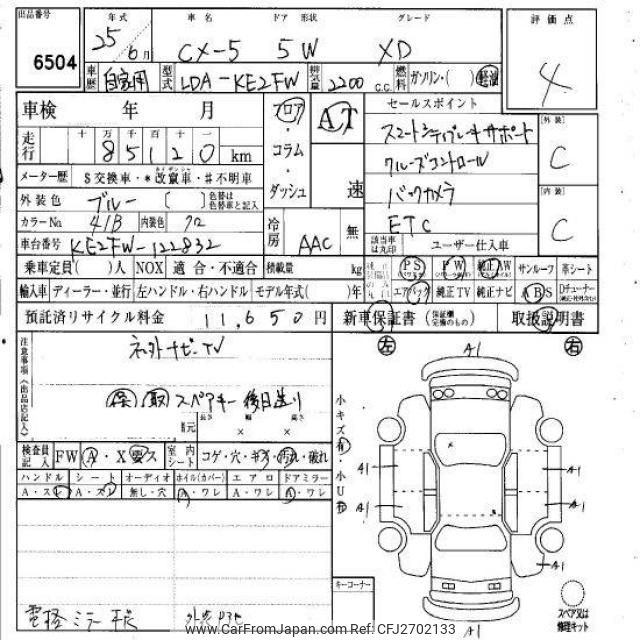 出品番号 年式 車名 ドア 形状 グレード 評価点
6504 25 6月 CX-5 5W XD 4
車歴 自家用 型式 LDA-KE2FW 排気量 2200 c.c. 燃料 ガソリン・( ) 軽油
車検 年 月 フロア・コラム・ダッシュ AT 速 セールスポイント
スマートシティブレーキサポート 外装 C
走行 十 万 千 百 十 一
85120 km クルーズコントロール
メーター歴 $交換車・*改竄車・#不明車 バックカメラ 内装 C
外装色 ブルー ( ) 色替は色替車と記入 ETC
カラーNo 41B 内装色 クロ 冷房 AAC 無
車台番号 KE2FW-122832 該当車は丸印 ユーザー仕入車
乗車定員( )人 NOX 適合・不適合 積載量 kg PS PW 純正AW サンルーフ 革シート
輸入車 ディーラー・並行 左ハンドル・右ハンドル モデル年式( )年 エアバック 純正TV 純正ナビ ABS Dチューナー
預託済リサイクル料金 11,650円 新車保証書 (保証欄完備のもの) 取扱説明書
注意事項(出品店記入) 左 A1 右
スペアキー 後日送り
諸元 長さ 幅 高さ × ×
小キズ有・小U有
検査員記入 FW A・X 要ス 室内シート コゲ・穴・キズ・汚れ・破れ
A1 A1
ハンドル シート オーディオ ホイル(カバー) エアロ ドアミラー
A・スレ A・スレ 無し・穴 A・ワレ A・ワレ A・ワレ
A1 A1
A1
キーコーナー
スペア又は修理キット
電格ミラー
A1
www.CarFromJapan.com Ref: CFJ2702133